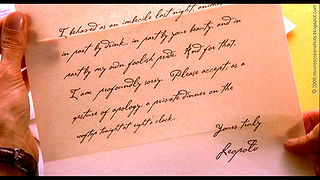 I behaved as an imbecile last night, anima
in part by drink, in part by your beauty, and in
part by my own foolish pride. And for that,
I am profoundly sorry. Please accept as a
gesture of apology, a private dinner on the
rooftop tonight at eight o'clock.
Yours truly
Leopold
© 2006 moviescreenshots.blogspot.com